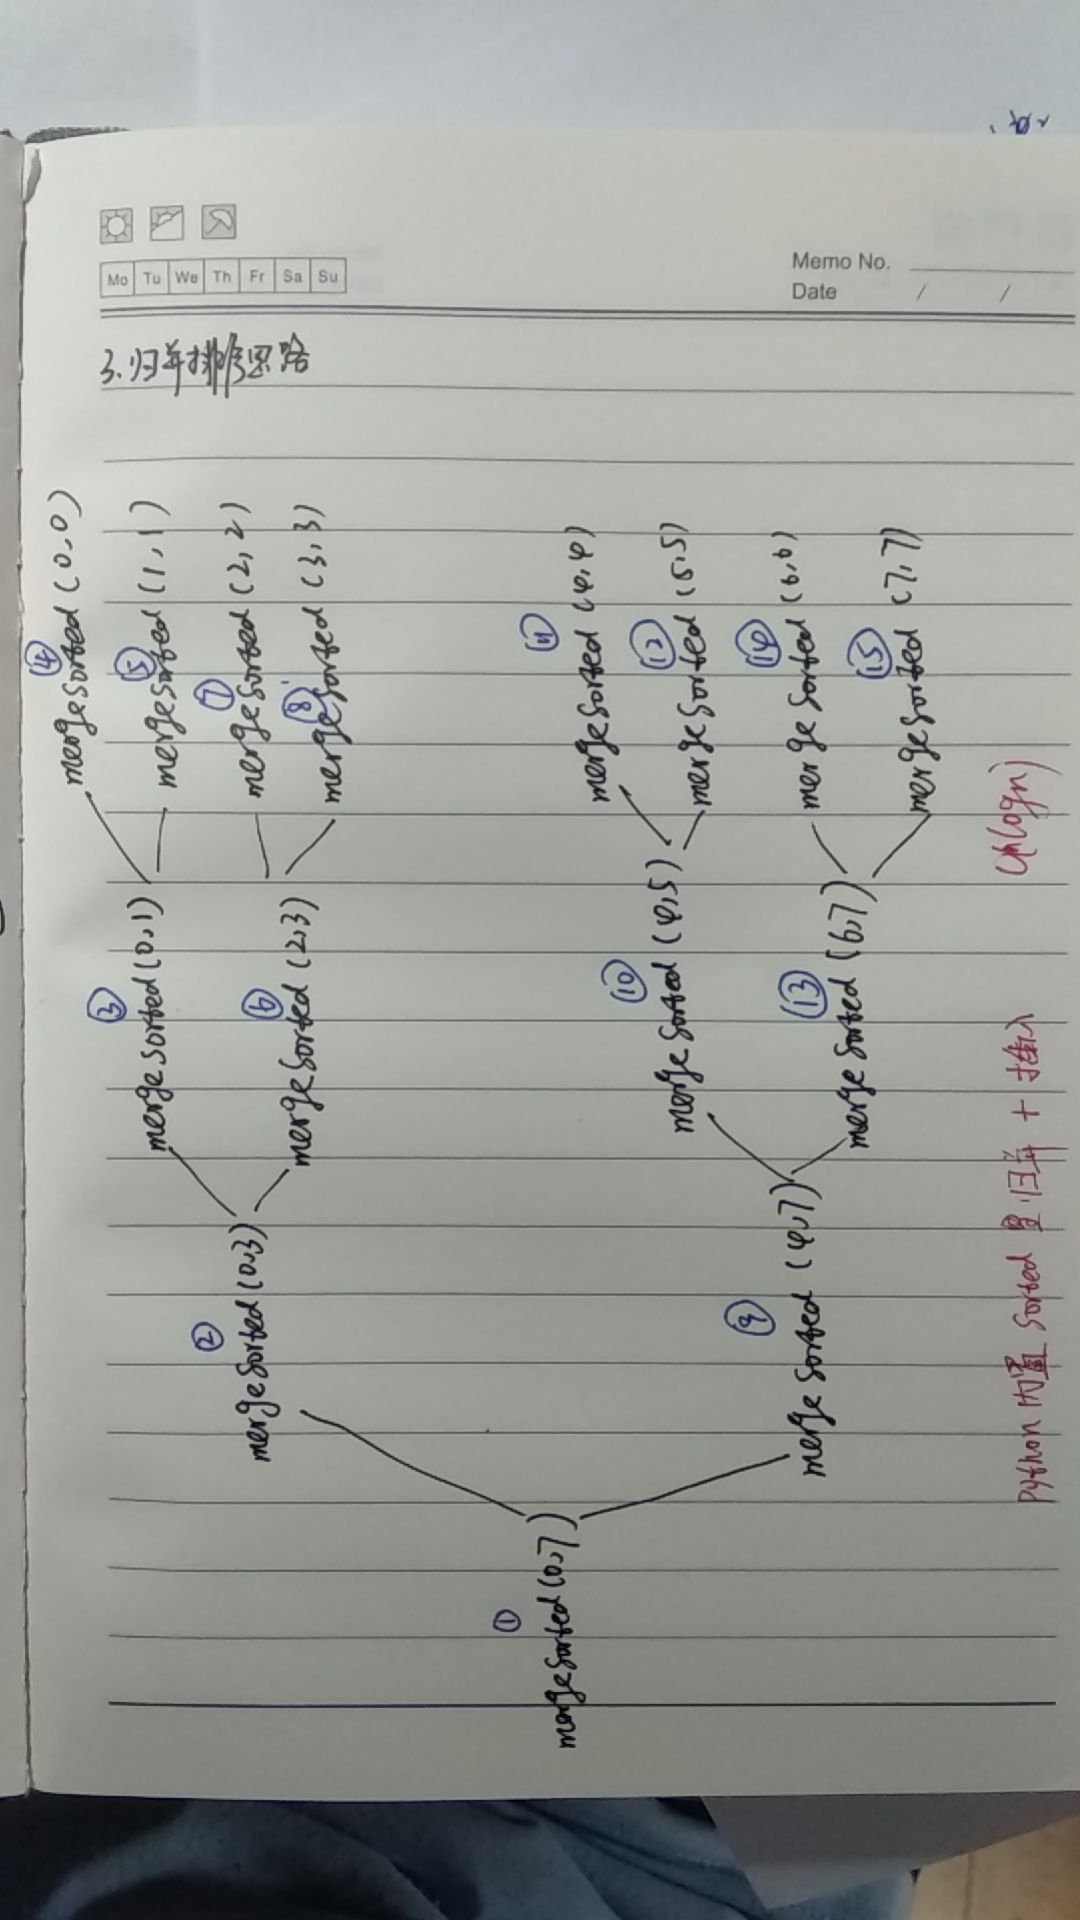 Mo Tu We Th Fr Sa Su
Memo No.
Date / /
3.归并排序思路
① mergeSorted(0,7)
② mergeSorted(0,3)
③ mergeSorted(0,1)
④ mergeSorted(0,0)
⑤ mergeSorted(1,1)
⑥ mergeSorted(2,3)
⑦ mergeSorted(2,2)
⑧ mergeSorted(3,3)
⑨ mergeSorted(4,7)
⑩ mergeSorted(4,5)
⑪ mergeSorted(4,4)
⑫ mergeSorted(5,5)
⑬ mergeSorted(6,7)
⑭ mergeSorted(6,6)
⑮ mergeSorted(7,7)
python 内置 sorted 是 归并 + 插入 (nlogn)